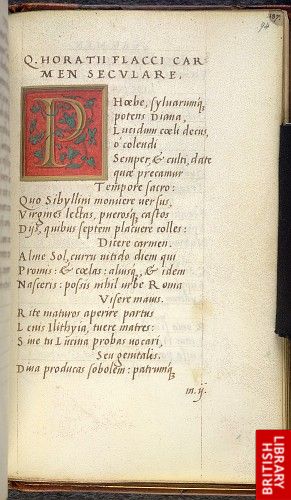 187.
94
Q. HORATII FLACCI CAR
MEN SECULARE.
PHœbe, sylvarumq́
potens Diana,
Lucidum cœli decus,
ô colendi
Semper, & culti, date
quæ precamur
Tempore sacro:
Quo Sibyllini monuere versus,
Virgines lectas, puerosq́ castos
Dijs, quibus septem placuere colles:
Dicere carmen.
Alme Sol, curru nitido diem qui
Promis: & cœlas: aliusq́, & idem
Nasceris: possis nihil urbe Roma
Visere maius.
Rite maturos aperire partus
Lenis Ilithyia, tuere matres:
Sive tu Lucina probas vocari,
Seu genitalis.
Diva producas sobolem: patrumq́
m.ij.
BRITISH
LIBRARY